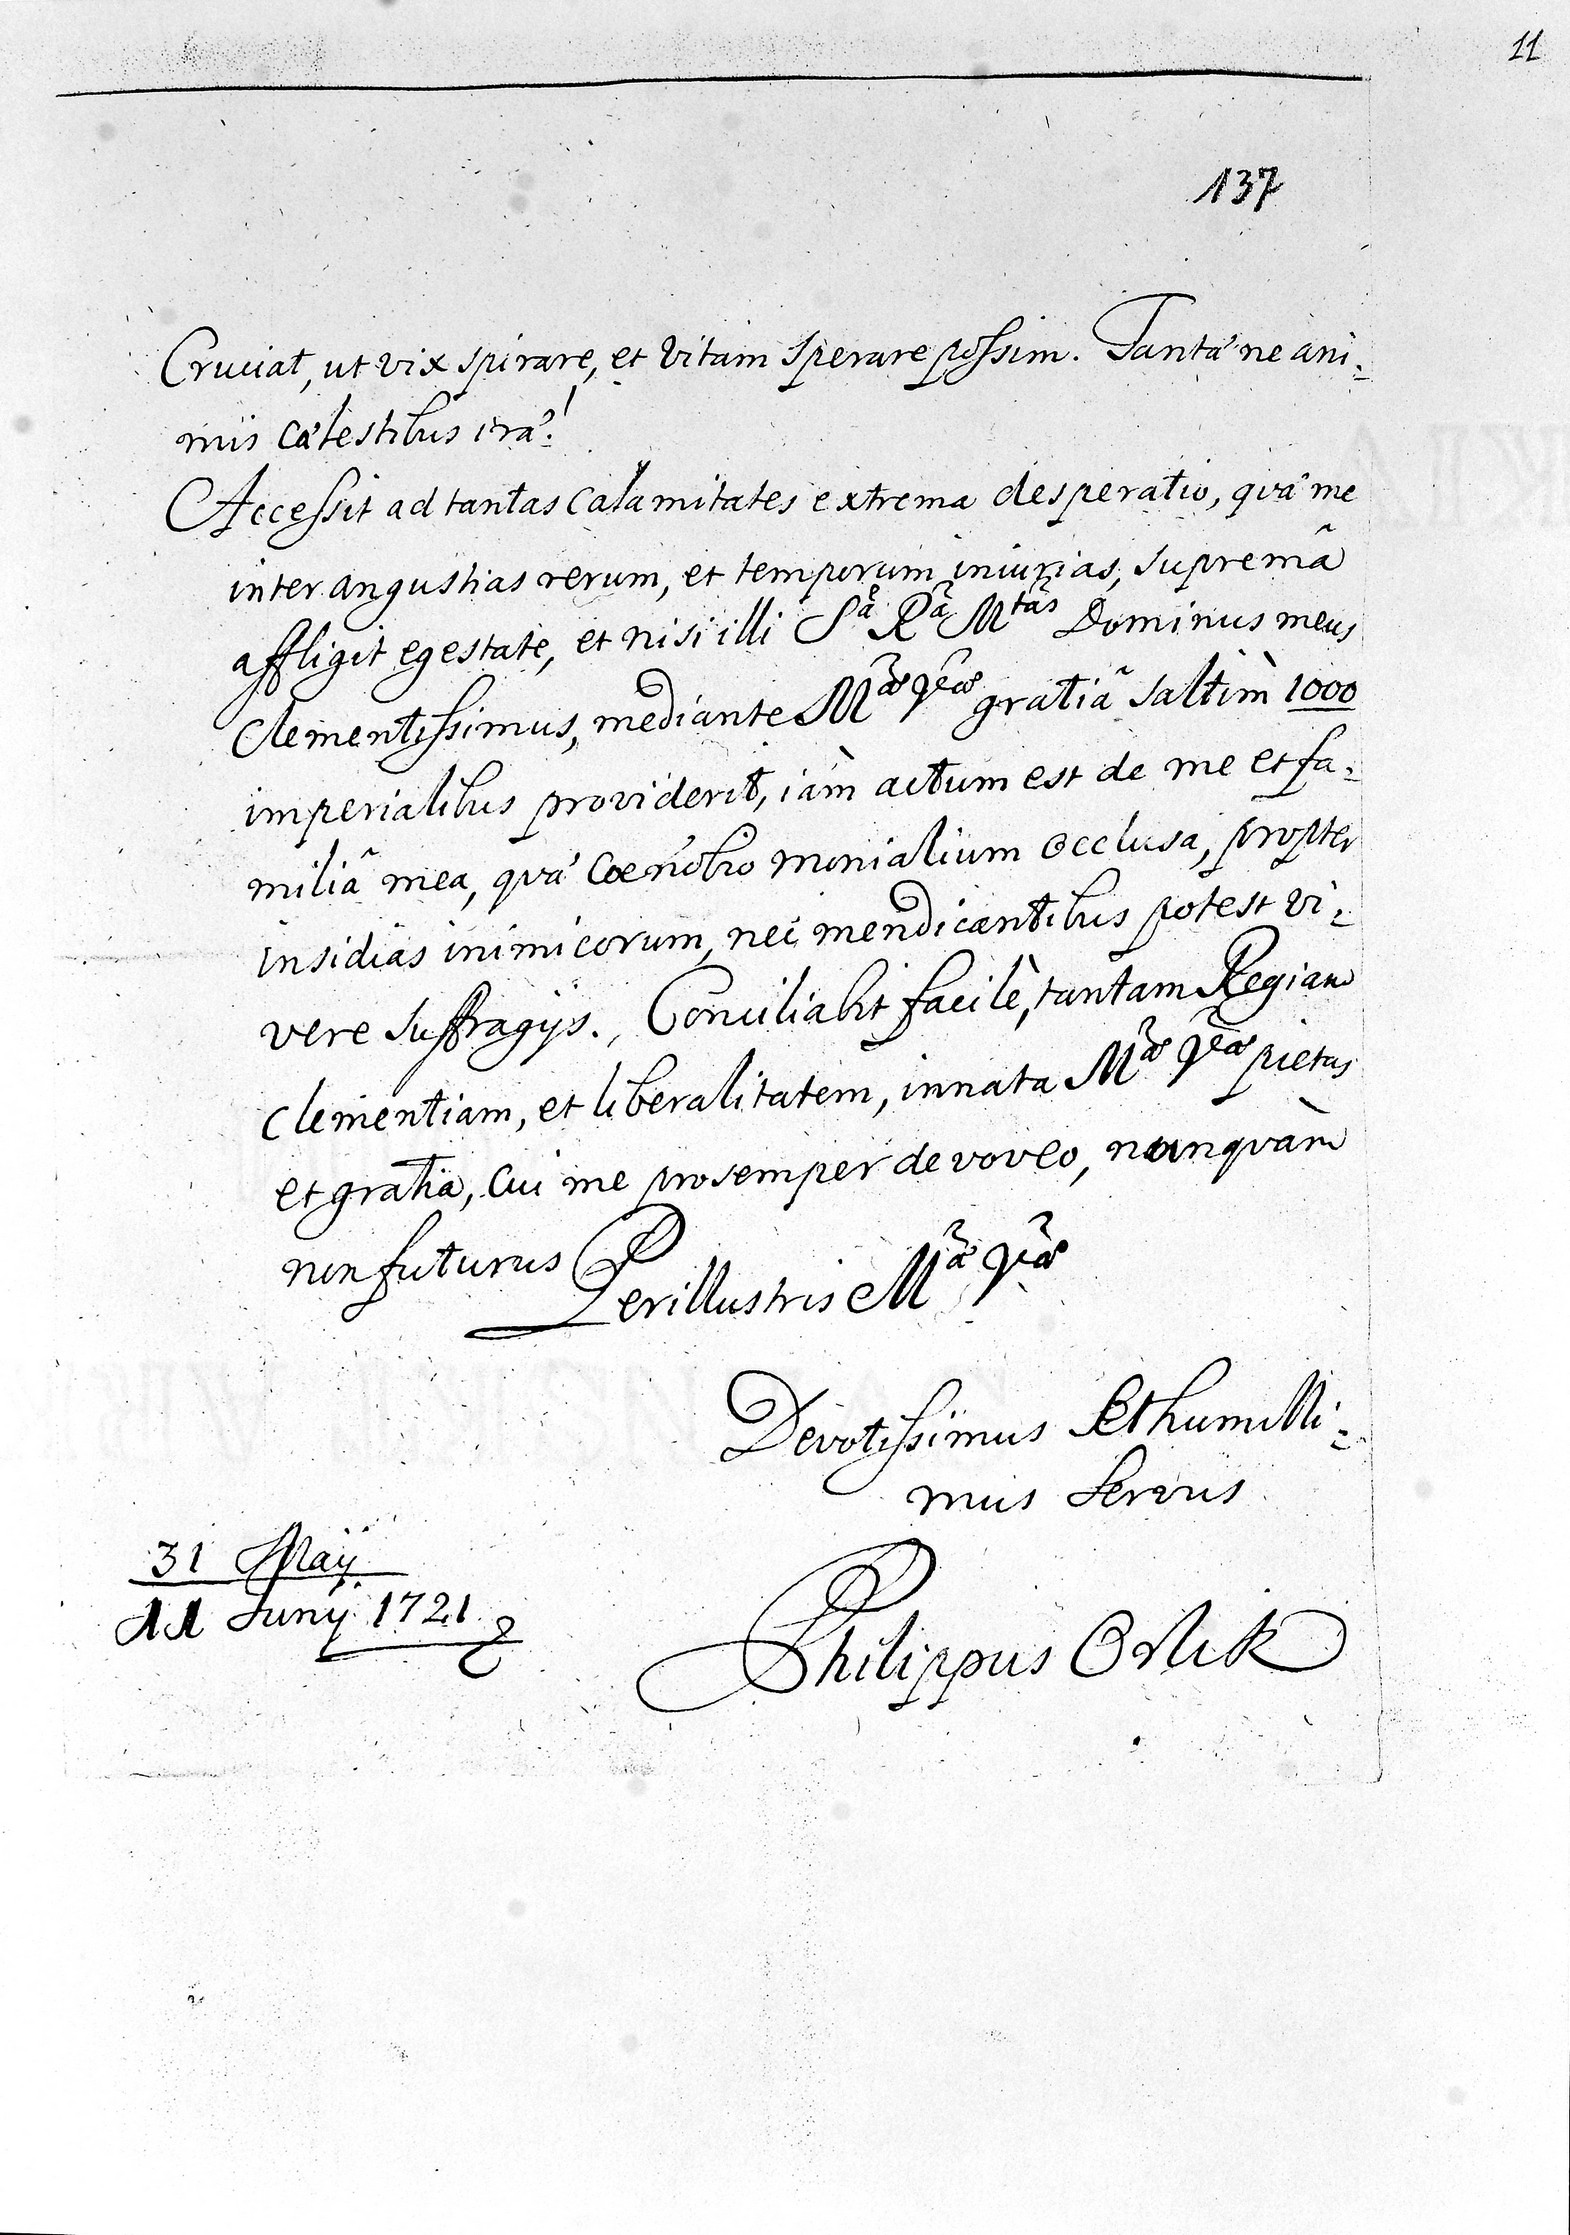 11
137
Cruciat, ut vix spirare, et vitam sperare possim. Tantæ ne ani:
mis cælestibus iræ?!
Accessit ad tantas calamitates extrema desperatio, quæ me
inter angustias rerum, et temporum iniurias, supremâ
affligit egestate, et nisi illi Sª Rª Mtas Dominus meus
Clementissimus, mediante Mæ Vræ gratiâ saltìm 1000
imperialibus providerit, iàm actum est de me et fa:
miliâ mea, quæ Coenobio monialium occlusa, propter
insidias inimicorum, nec mendicantibus potest vi:
vere suffragÿs. Conciliabit facilè, tantam Regiam
Clementiam, et liberalitatem, innata Mæ Vræ pietas
et gratia, cui me pro semper devoveo, nunquàm
non futurus Perillustris Mæ Vræ
Devotissimus Et humilli:
mus Servus
31 Maÿ
11 Junÿ 1721
Philippus Orlik